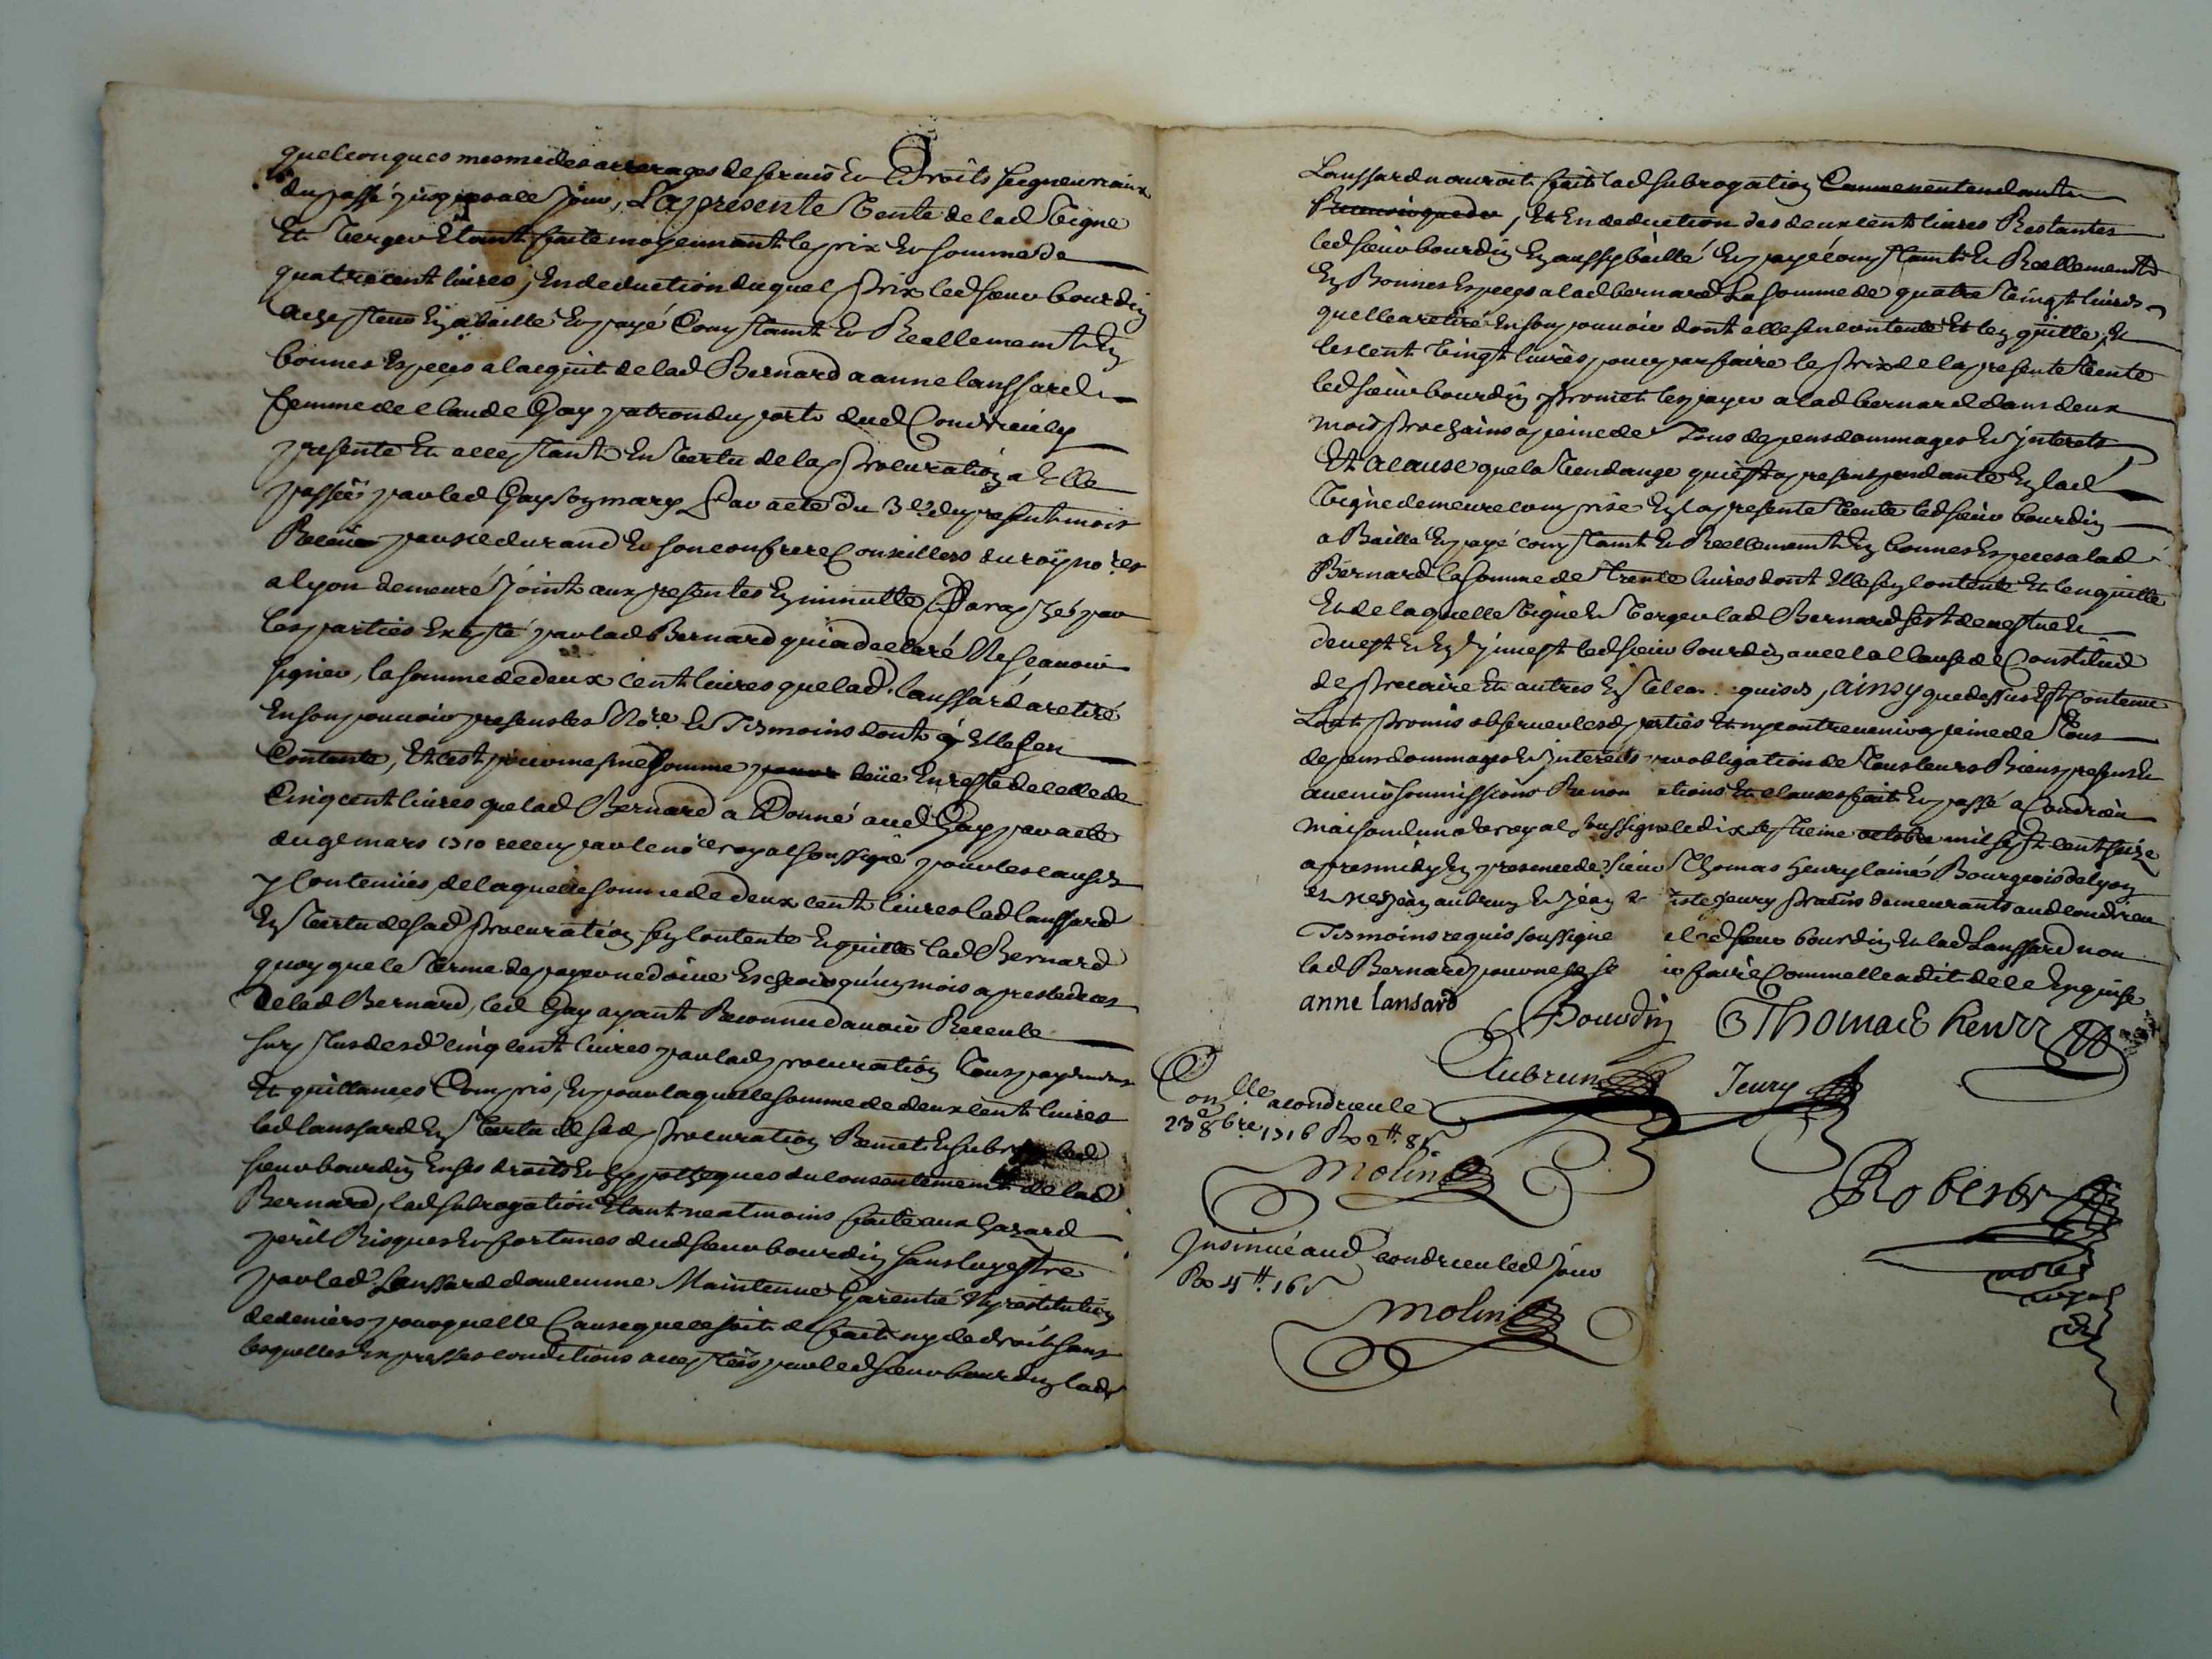 quelconques mesme des arrerages de servis et Droits seigneuriaux
du passé jusques a ce jour, La presente vente de lad vigne
Et verger Etant faite moyennant le prix et somme de
quatre cent livres, En deduction duquel prix led sieur bourdin
achepteur En a baillé et payé Comptant et Reellement En
bonnes Especes a lacquit de lad Bernard a anne laussard
femme de Claude Gay patron du port dud Condrieu icy
presente Et acceptante En vertu de la procuration a Elle
passée par led Gay son mary Par acte du 3e du present mois
Receüe par me durand et son confrere Conseillers du roy nores
a lyon demeuré joint aux presentes En minutte Paraphée par
les parties Excepté par lad Bernard qui a declaré Ne scavoir
signer, la somme de deux cent livres que lad. laussard a retiré
En son pouvoir presents les Nore et Tesmoins dont Elle sen
Contente, Et cest pour mesme somme deüe En reste de celle de
Cinq cent livres que lad Bernard a Donné aud Gay par acte
du 9e mars 1710 receu par le nore royal soussigné pour les causes
y Contenües, de laquelle somme de deux cent livres lad laussard
En vertu de sad procuration sen Contente En quitte lad Bernard
quoy que le terme de payer ne doive Escheoir qu'un mois apres le deces
de lad Bernard, led Gay ayant Reconnu davoir Receu le
surplus desd cinq cent livres par lad procuration Tous payements
Et quittances Compris, Et pour laquelle somme de deux cent livres
lad laussard En vertu de sad procuration Remet Et subroge led
sieur bourdin En ses droits et hyppotheques du consentement de lad
Bernard, lad subrogation Etant neatmoins faite aux hazard
peril Risques et fortunes dud sieur bourdin sans luy estre
par lad Laussard daucune Maintenue Garentie Ny restitution
de deniers pour quelle Cause que ce soit de fait ny de droit sans
lesquelles Expresses conditions acceptées par led sieur bourdin lad
Laussard nauroit fait lad subrogation
, Et En deduction des deux cent livres Restantes
led sieur bourdin En a aussy baillé Et payé comptant Et Reellement
En Bonnes Especes a lad bernard La somme de quatre vingt livres
quelle a retiré En son pouvoir dont elle sen contente Et len quitte, Et
les cent vingt livres pour parfaire le prix de la presente vente
led sieur bourdin promet les payer a lad bernard dans deux
mois prochains a peine de Tous depens dommages et interets
Et a cause que la vendange qui est a present pendante En lad
vigne demeure comprise En la presente vente led sieur bourdin
a Baillé Et payé comptant Et Reellement En bonnes Especes a lad
Bernard la somme de Trente livres dont Elle sen Contente Et len quitte
Et de laquelle vigne Et verger lad Bernard sest demestue Et
devest Et En Investit led sieur bourdin avec la clause de Constitud
de precaire Et autres En tel cas quises, ainsy que dessus Est Contenu
Lont promis observer lesd parties Et ny contrevenir a peine de Tous
depens dommages Et interets par obligation de Tous leurs Biens presents Et
avenir soumissions Renon ations Et clauses fait Et passé a Condrieu
maison du nore royal soussigné le dix septieme octobre mil sept cent seize
apres midy En presence de sieur Thomas henry lainé Bourgeois de lyon
et me Jean aubrun Et Jean tiste Jeury demeurants aud condrieu
Tesmoins requis soussigne led sieur bourdin Et lad Laussard non
lad Bernard pour ne le faire Comme elle a dit de ce Enquise
anne lansard Bourdin Thomas henry
Aubrun Jeury
Conlle a condrieu le
23e 8bre 1716 Rx 2tt. 8s
Molin
Roberts
nore
royal
Insinué aud condrieu led jour
Rx 4tt. 16s
Molin